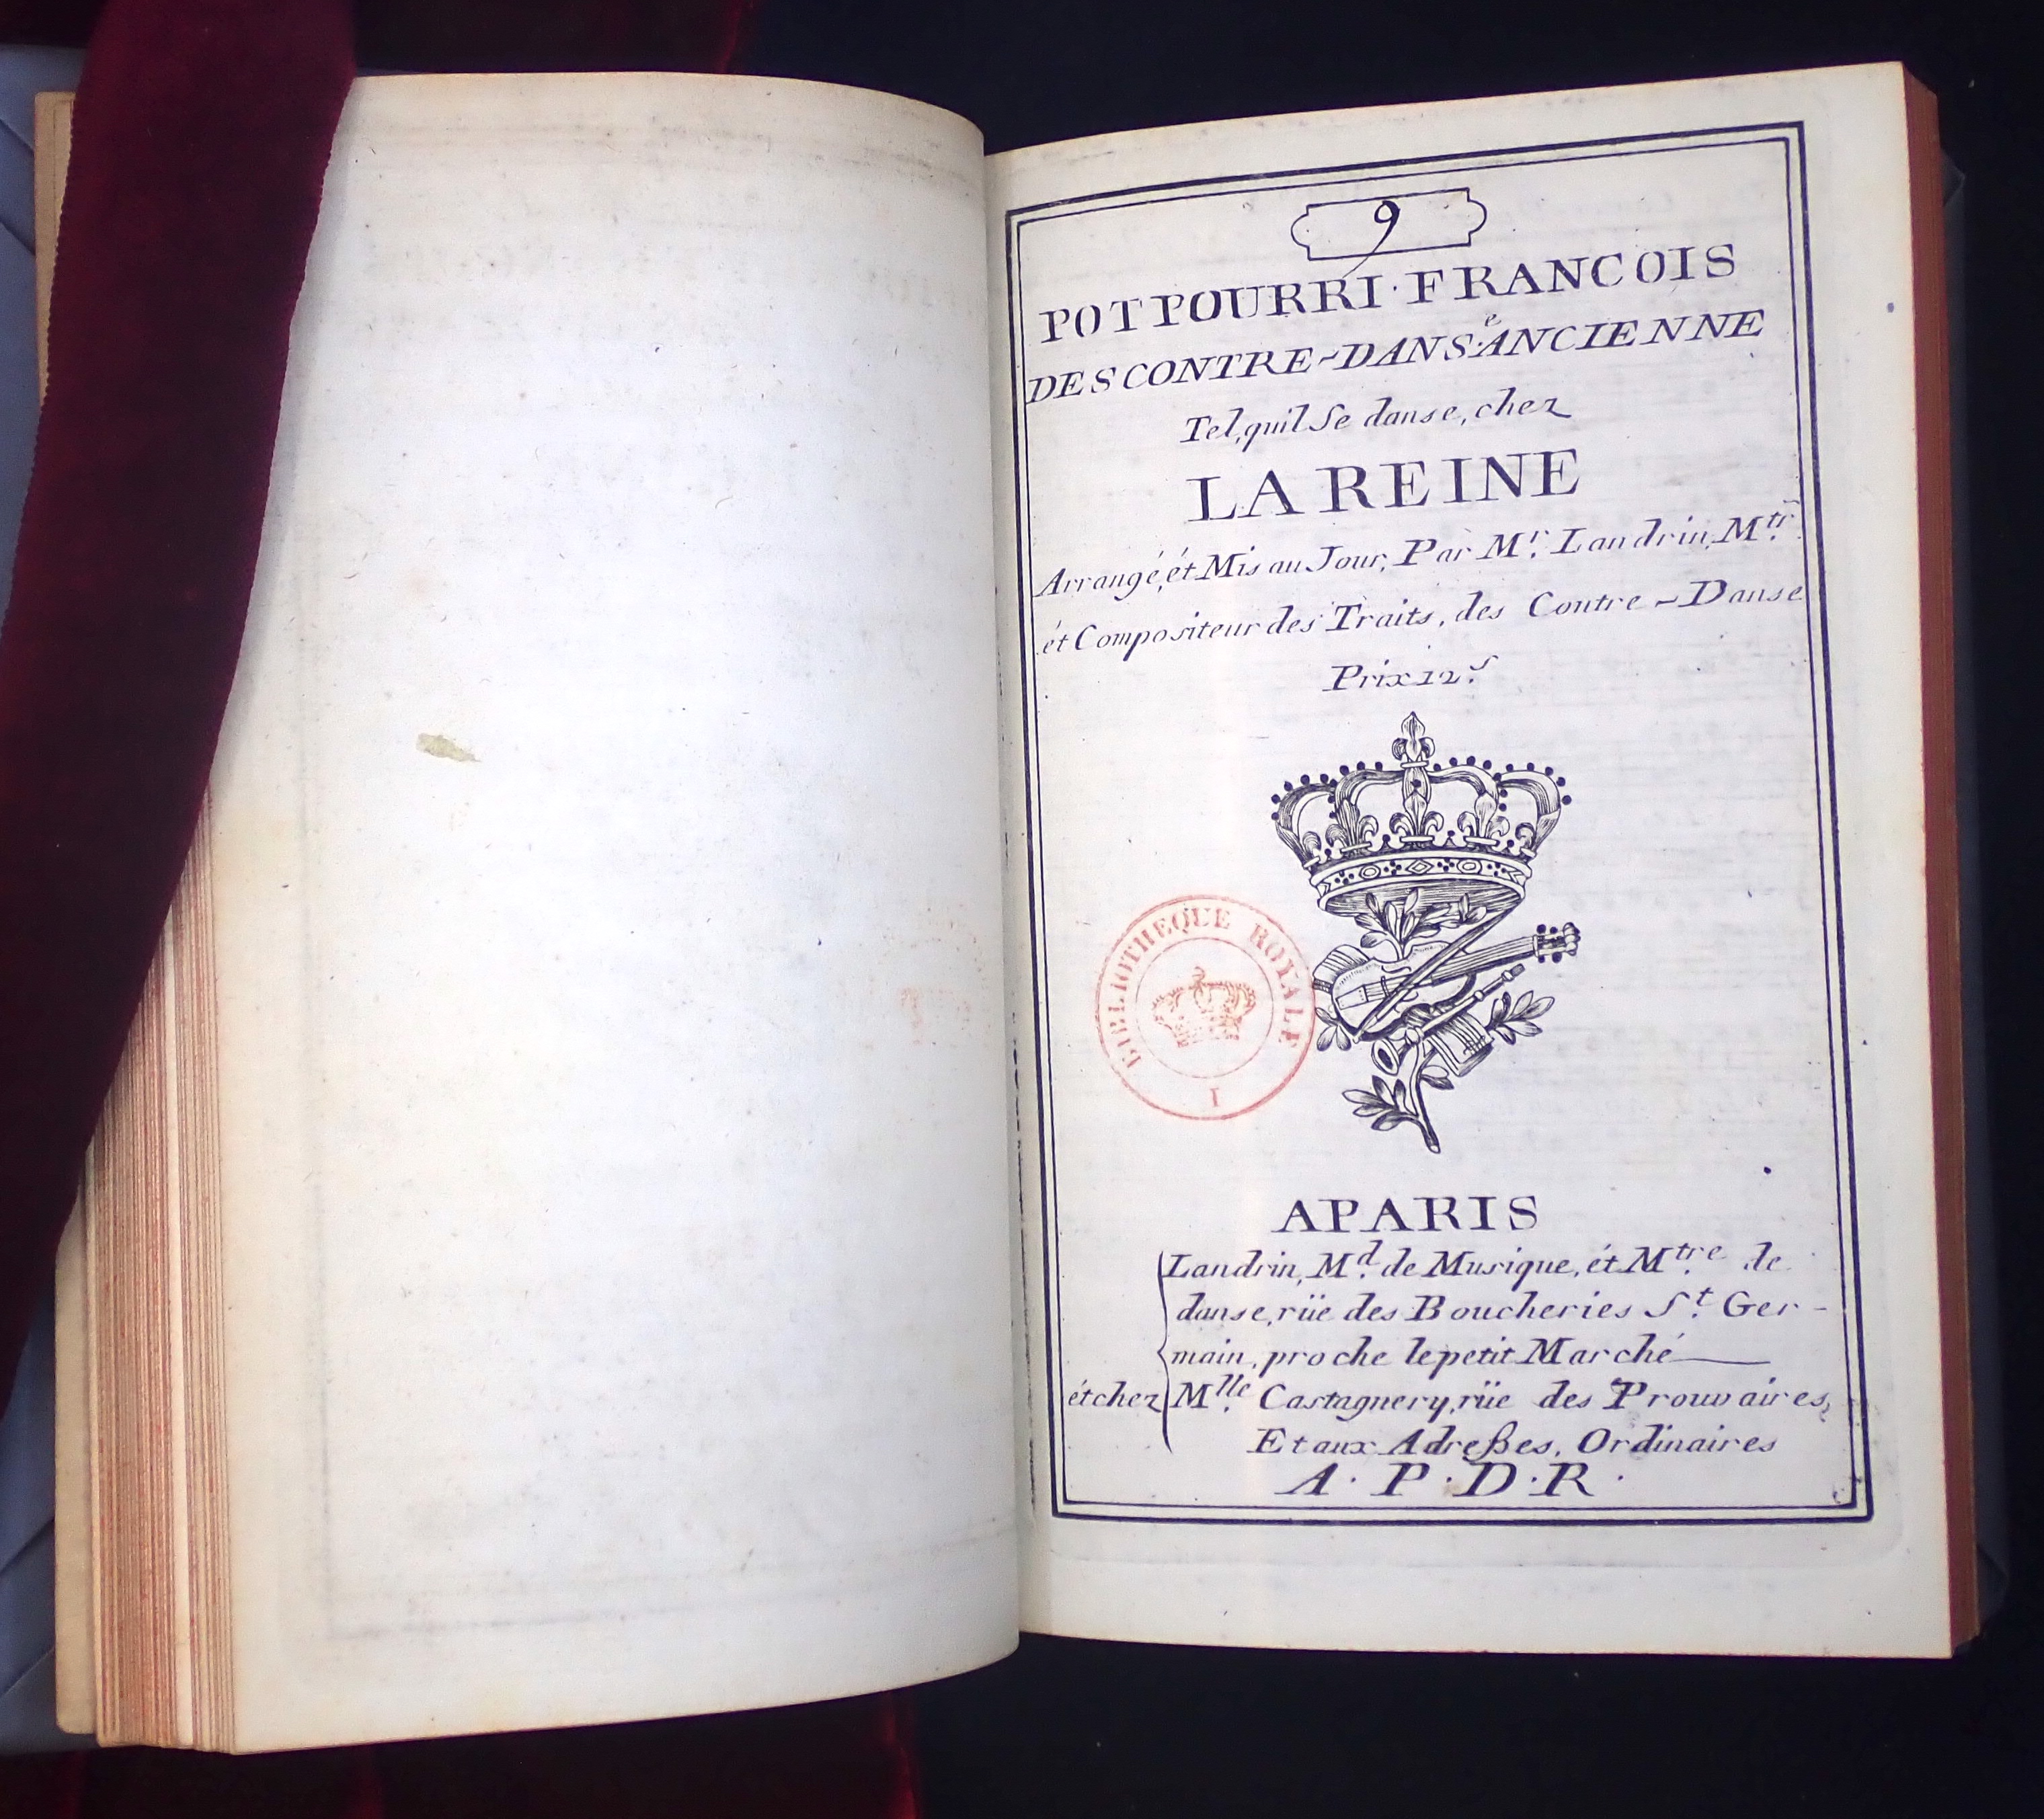 9
POTPOURRI·FRANCOIS
DES CONTRE-DANSe ANCIENNE
Tel, quil Se danse, chez
LA REINE
Arrangé, ét Mis au Jour, Par Mr. Landrin, Mtr.
ét Compositeur des Traits, des Contre-Danse
Prix 12 s.
BIBLIOTHEQUE ROYALE
I
A PARIS
Landrin, Md. de Musique, ét Mtre. de
danse, rüe des Boucheries St. Ger-
main, proche le petit Marché
ét chez Mlle. Castagnery, rüe des Prouvaires,
Et aux Adreßes, Ordinaires
A·P·D·R·